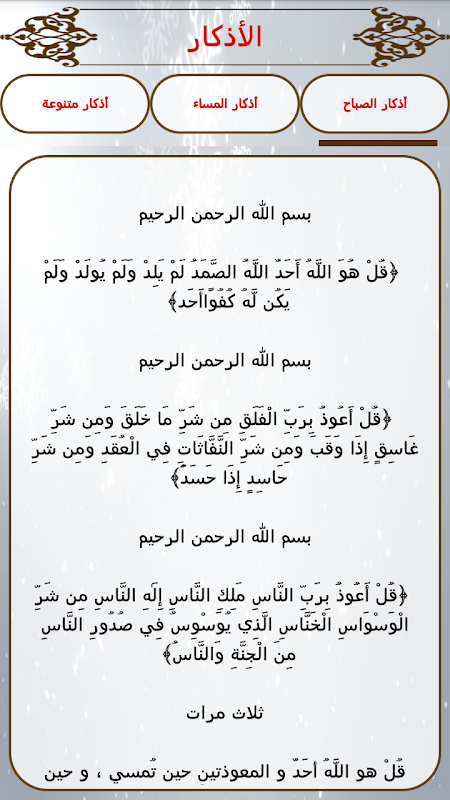 الأذكار
أذكار الصباح
أذكار المساء
أذكار متنوعة
بسم الله الرحمن الرحيم
﴿قُلْ هُوَ اللَّهُ أَحَدٌ اللَّهُ الصَّمَدُ لَمْ يَلِدْ وَلَمْ يُولَدْ وَلَمْ
يَكُن لَّهُ كُفُوًاأَحَد﴾
بسم الله الرحمن الرحيم
﴿قُلْ أَعُوذُ بِرَبِّ الْفَلَقِ مِن شَرِّ مَا خَلَقَ وَمِن شَرِّ
غَاسِقٍ إِذَا وَقَبَ وَمِن شَرِّ النَّفَّاثَاتِ فِي الْعُقَدِ وَمِن شَرِّ
حَاسِدٍ إِذَا حَسَدَ﴾
بسم الله الرحمن الرحيم
﴿قُلْ أَعُوذُ بِرَبِّ النَّاسِ مَلِكِ النَّاسِ إِلَهِ النَّاسِ مِن شَرِّ
الْوَسْوَاسِ الْخَنَّاسِ الَّذِي يُوَسْوِسُ فِي صُدُورِ النَّاسِ
مِنَ الْجِنَّةِ وَالنَّاسِ﴾
ثلاث مرات
قُلْ هو اللَّهُ أحَدٌ و المعوذتين حين تُمسي ، و حين